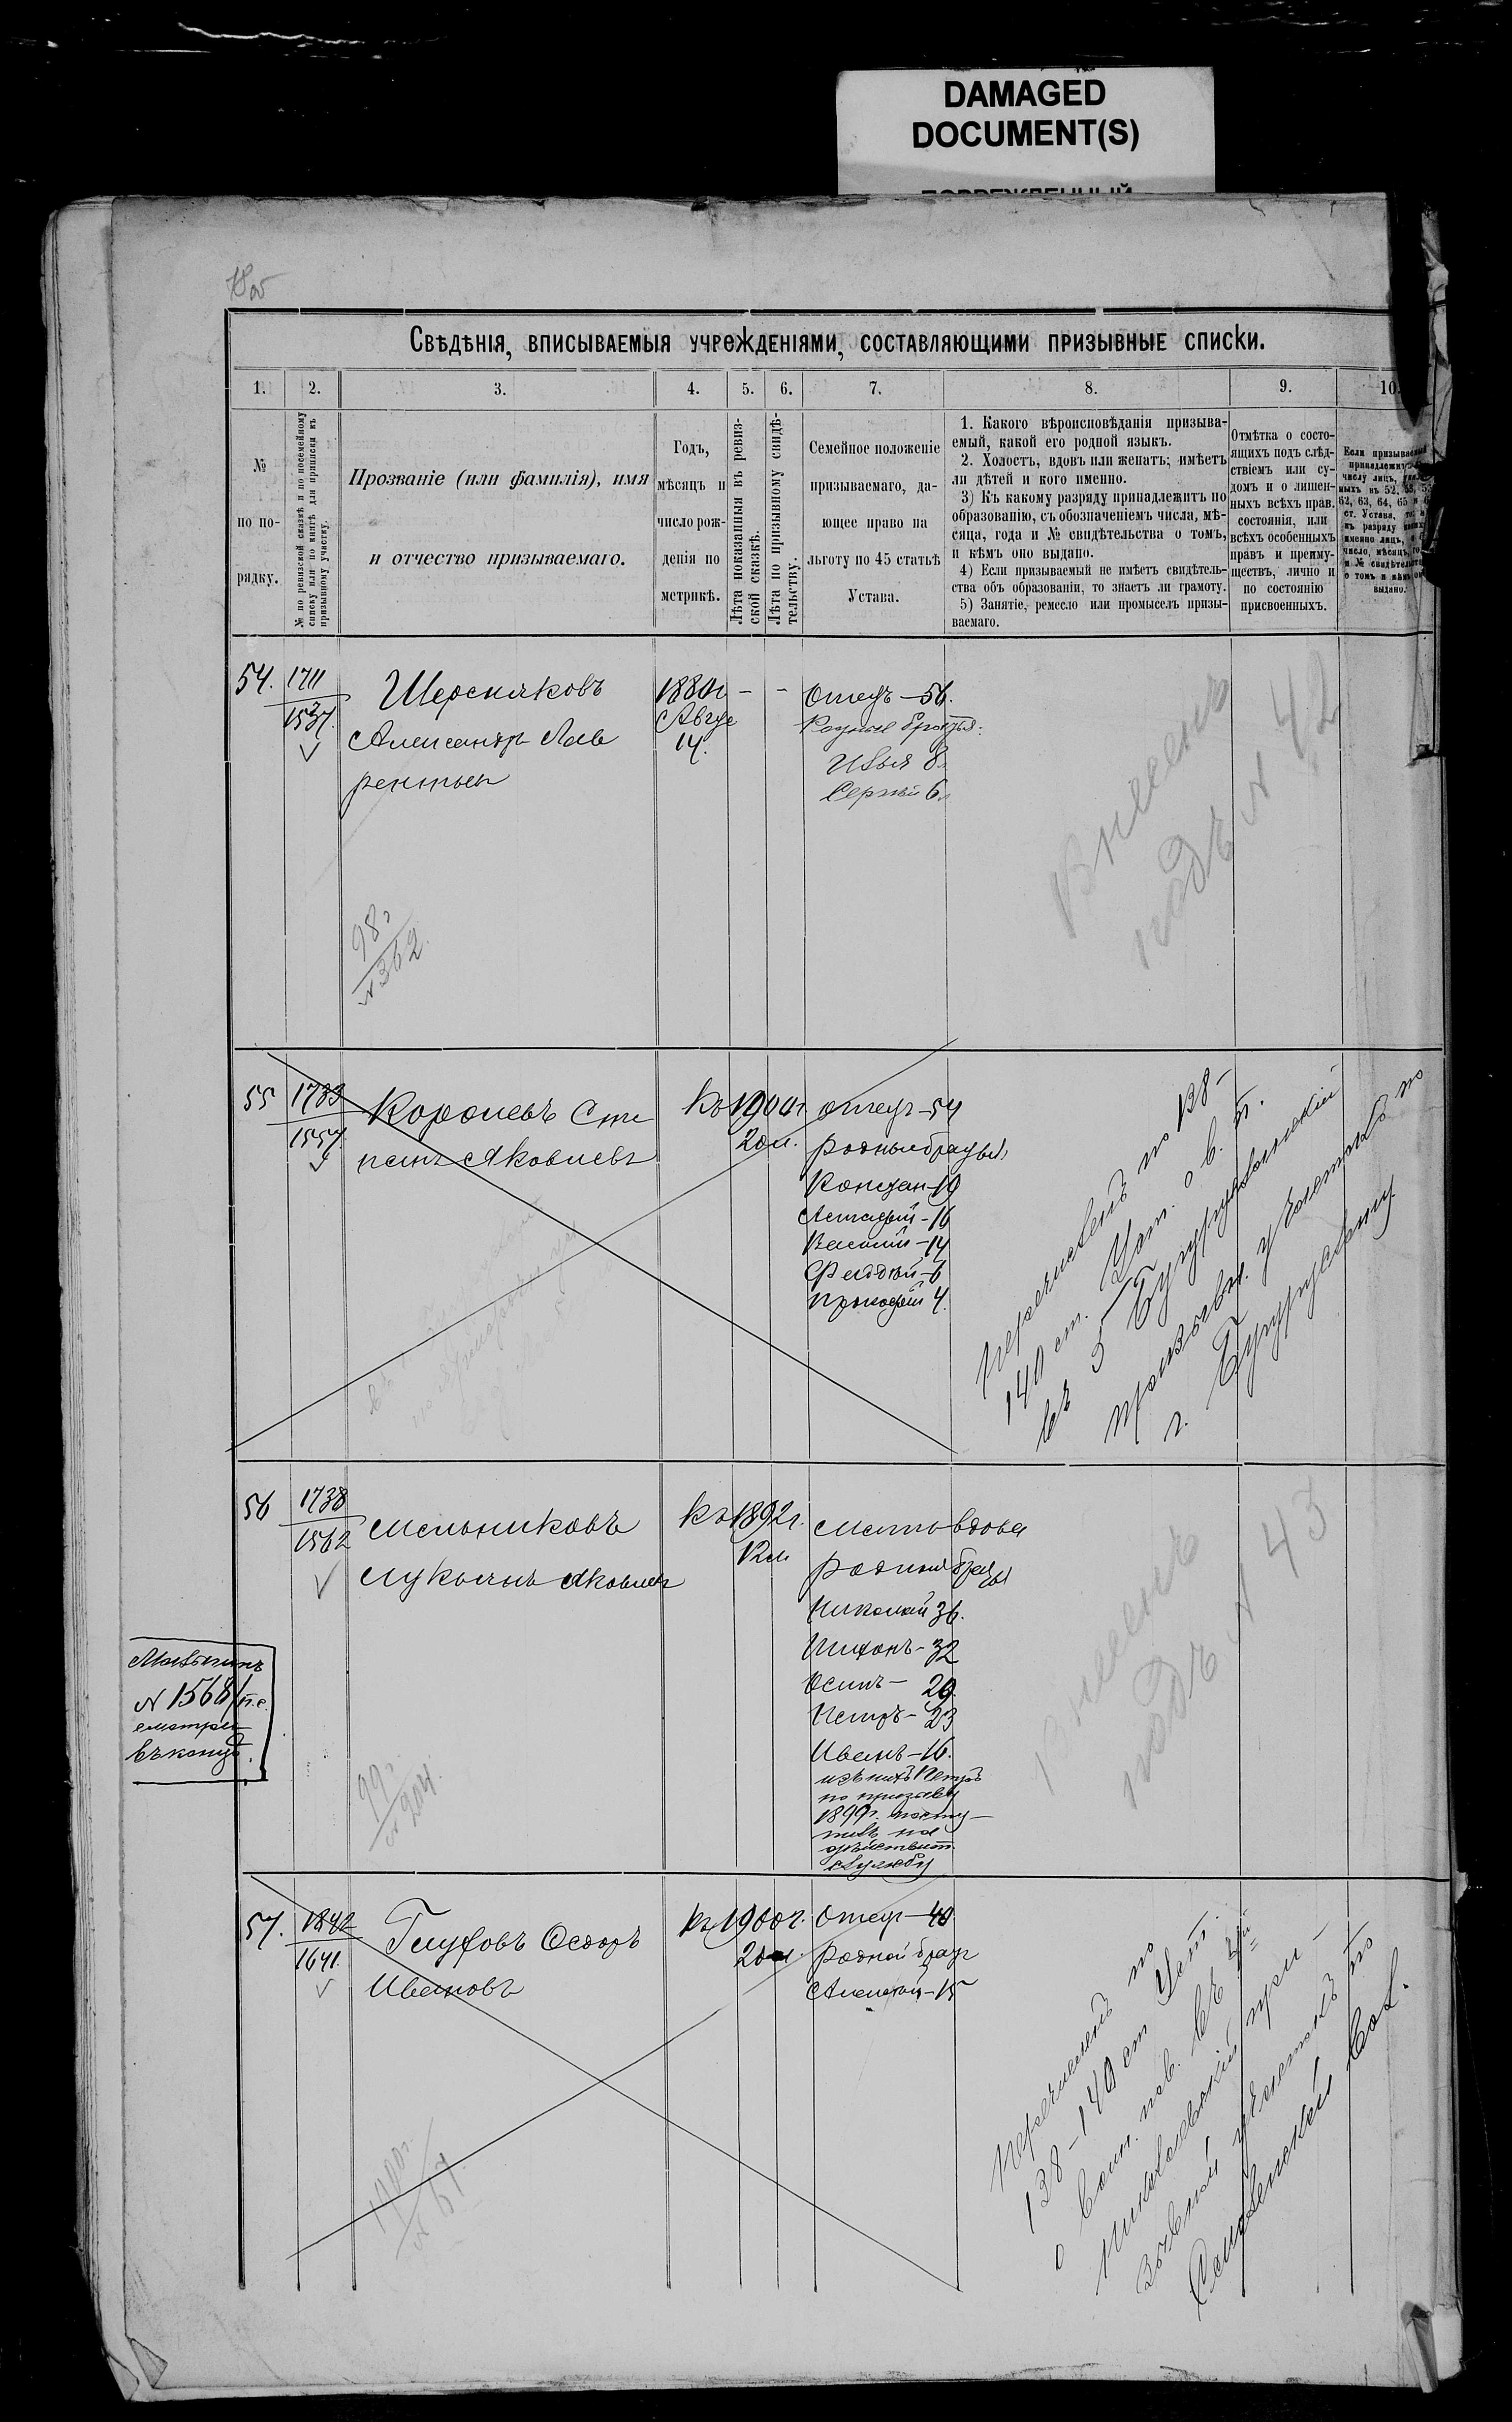 DAMAGED
DOCUMENT(S)
78 об
Свѣдѣнія, вписываемыя учрежденіями, составляющими призывные списки.
1. 2. 3. 4. 5. 6. 7. 8. 9. 10.
№
по по-
рядку.
№ по ревизской сказкѣ и по посемейному
списку или по книгѣ для приписки къ
призывному участку.
Прозваніе (или фамилія), имя
и отчество призываемаго.
Годъ,
мѣсяцъ и
число рож-
денія по
метрикѣ.
Лѣта показанныя въ ревиз-
ской сказкѣ.
Лѣта по призывному свидѣ-
тельству.
Семейное положеніе
призываемаго, да-
ющее право на
льготу по 45 статьѣ
Устава.
1. Какого вѣроисповѣданія призыва-
емый, какой его родной языкъ.
2. Холостъ, вдовъ или женатъ; имѣетъ
ли дѣтей и кого именно.
3) Къ какому разряду принадлежитъ по
образованію, съ обозначеніемъ числа, мѣ-
сяца, года и № свидѣтельства о томъ,
и кѣмъ оно выдано.
4) Если призываемый не имѣетъ свидѣтель-
ства объ образованіи, то знаетъ ли грамоту.
5) Занятіе, ремесло или промыселъ призы-
ваемаго.
Отмѣтка о состо-
ящихъ подъ слѣд-
ствіемъ или су-
домъ и о лишен-
ныхъ всѣхъ правъ
состоянія, или
всѣхъ особенныхъ
правъ и преиму-
ществъ, лично и
по состоянію
присвоенныхъ.
Если призываемый
принадлежитъ
числу лицъ,
62, 63, 64, 65
ст. Устава,
къ разряду
именно лицъ,
число, мѣсяцъ,
и №
о томъ и кѣмъ
выдано.
54.
1711
1537.
Шерстяковъ
Александръ Лав
рентьев
1880г
Авгус
14.
- -
Отецъ - 56.
Родные братья:
Илья 8
Сергѣй 6
98г
№ 362
Внесенъ
подъ № 42
55
1733
1557.
Королевъ Сте
панъ Яковлевъ
Къ 1900г
20 л.
отецъ - 54
родные братья
Констан - 19
Астафій - 16
Василій - 14
Фаддѣй - 6
Прокофій 4.
Перечисленъ по 138-
140 ст. Уст. о в. п.
въ 5 Бугурусланскій
призывн. участокъ по
г. Бугуруслану
56
1738
1562
Мельниковъ
Лукьянъ Яковлев
Къ 1892г.
12 л
Мать вдова
родные братья
Николай 36.
Тихонъ - 32
Осипъ - 29.
Петръ - 23
Иванъ - 16.
изъ нихъ Петръ
по призыву
1899г. посту-
пилъ на
дѣйствит
службу
99г.
№ 204.
Внесенъ
подъ № 43
№ 1568 п.с.
смотри
въ концѣ.
57.
1842
1641.
Глуховъ Федоръ
Ивановъ
Къ 1900г.
20 л.
Отецъ - 48
родной братъ
Алексѣй - 15
1900г.
№ 67
Перечисленъ по
138 - 140 ст Уст.
о воин. пов. въ
Николаевскій при-
зывной участокъ по
вол.